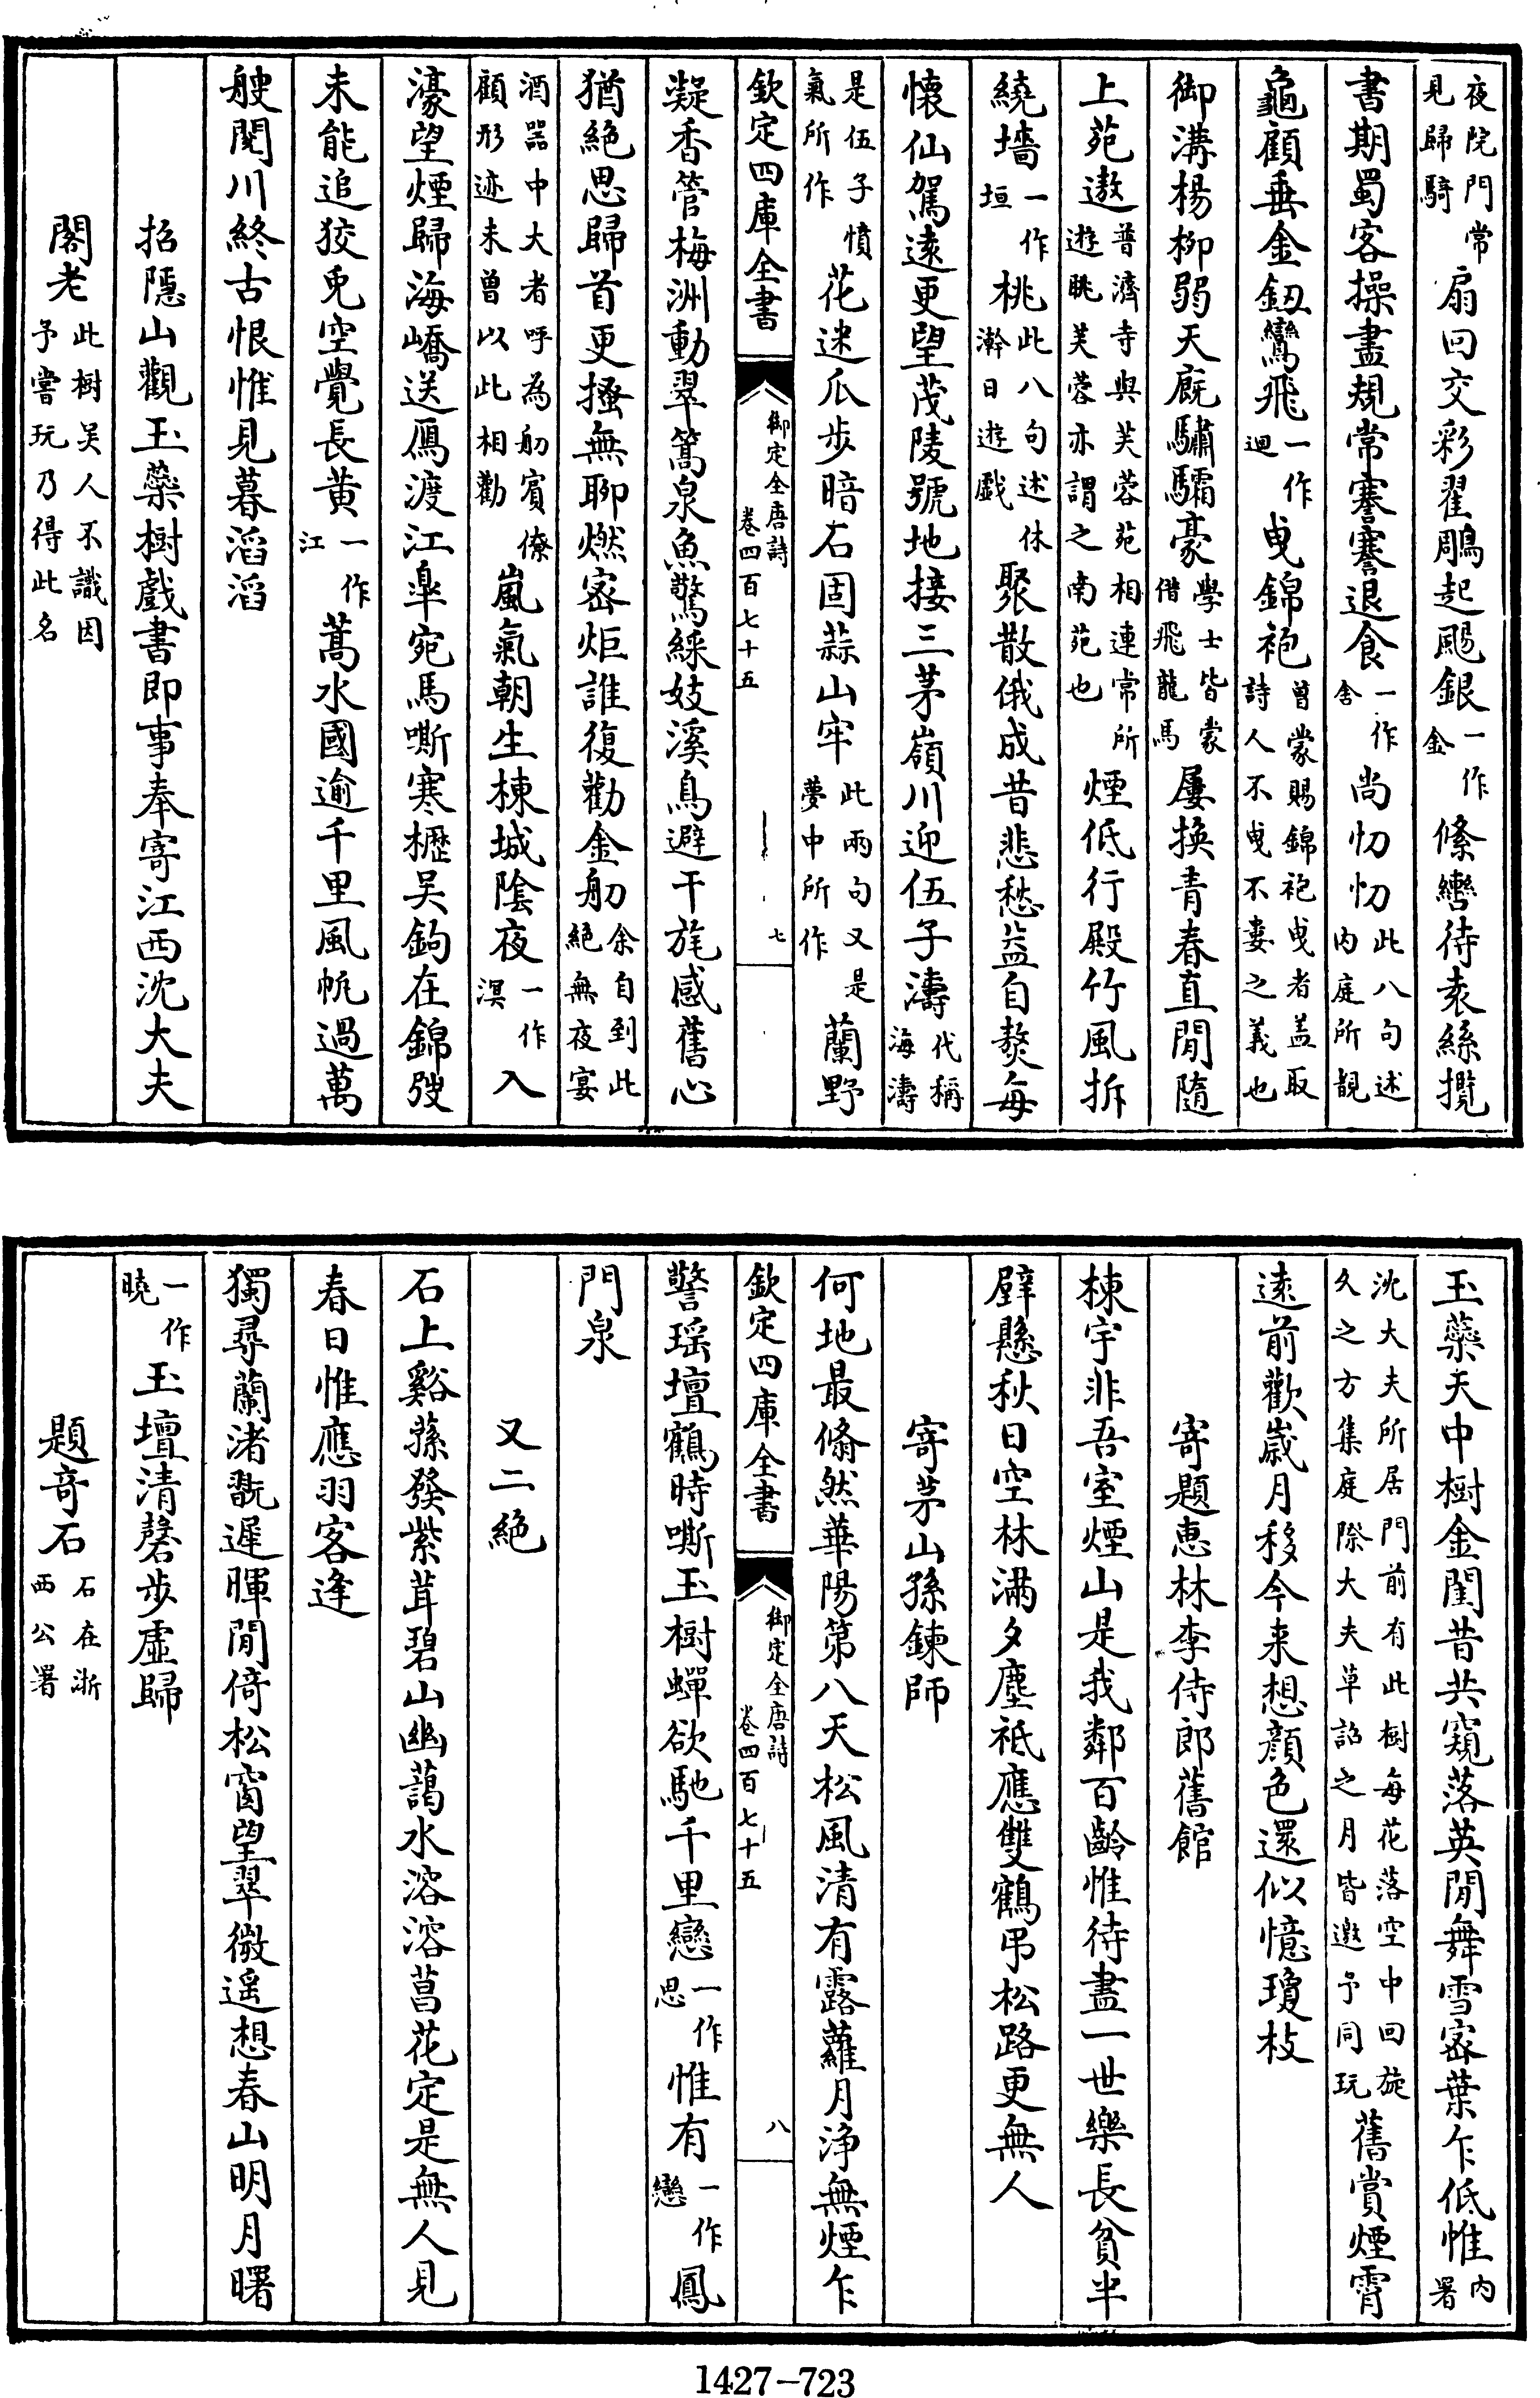 夜院門常見歸騎扇回交彩翟鵰起颺銀一作金絛轡待袁絲攬
書期蜀客操盡規常謇謇退食一作舍尚忉忉此八句述內庭所覩
龜顧垂金鈕鸞飛一作迴曵錦袍曾蒙賜錦袍曵者盖取詩人不曵不婁之義也
御溝楊柳弱天廐驌驦豪學士皆蒙借飛龍馬屢換青春直閒隨
上苑遨普濟寺與芙蓉苑相連常所遊眺芙蓉亦謂之南苑也煙低行殿竹風拆
繞墻一作垣桃此八句述休澣日遊戲聚散俄成昔悲愁益自熬每
懷仙駕遠更望茂陵號地接三茅嶺川迎伍子濤代稱海濤
是伍子憤氣所作花迷瓜步暗石固蒜山牢此兩句又是夢中所作蘭野
欽定四庫全書 御定全唐詩 卷四百七十五 七
凝香管梅洲動翠篙泉魚驚綵妓溪鳥避干旄感舊心
猶絕思歸首更搔無聊燃密炬誰復勸金舠余自到此絕無夜宴
酒器中大者呼為舠賓僚顧形迹未曾以此相勸嵐氣朝生棟城陰夜一作溟入
濠望煙歸海嶠送鴈渡江臯宛馬嘶寒櫪吳鉤在錦弢
未能追狡兎空覺長黃一作江蒿水國逾千里風帆過萬
艘閱川終古恨惟見暮滔滔
招隱山觀玉蘂樹戲書即事奉寄江西沈大夫
閣老此樹吳人不識因予嘗玩乃得此名
玉蘂天中樹金閨昔共窺落英閒舞雪密葉乍低帷內署
沈大夫所居門前有此樹每花落空中回旋久之方集庭際大夫草詔之月皆邀予同玩舊賞煙霄
遠前歡歲月移今来想顔色還似憶瓊枝
寄題惠林李侍郎舊館
棟宇非吾室煙山是我鄰百齡惟待盡一世樂長貧半
壁懸秋日空林滿夕塵祇應雙鶴弔松路更無人
寄茅山孫鍊師
何地最翛然華陽第八天松風清有露蘿月浄無煙乍
欽定四庫全書 御定全唐詩 卷四百七十五 八
警瑶壇鶴時嘶玉樹蟬欲馳千里戀一作思惟有一作戀鳳
門泉
又二絕
石上谿蓀發紫茸碧山幽藹水溶溶菖花定是無人見
春日惟應羽客逢
獨尋蘭渚翫遲暉閒倚松窗望翠微遥想春山明月曙
一作曉玉壇清磬步虛歸
題奇石石在浙西公署
1427-723